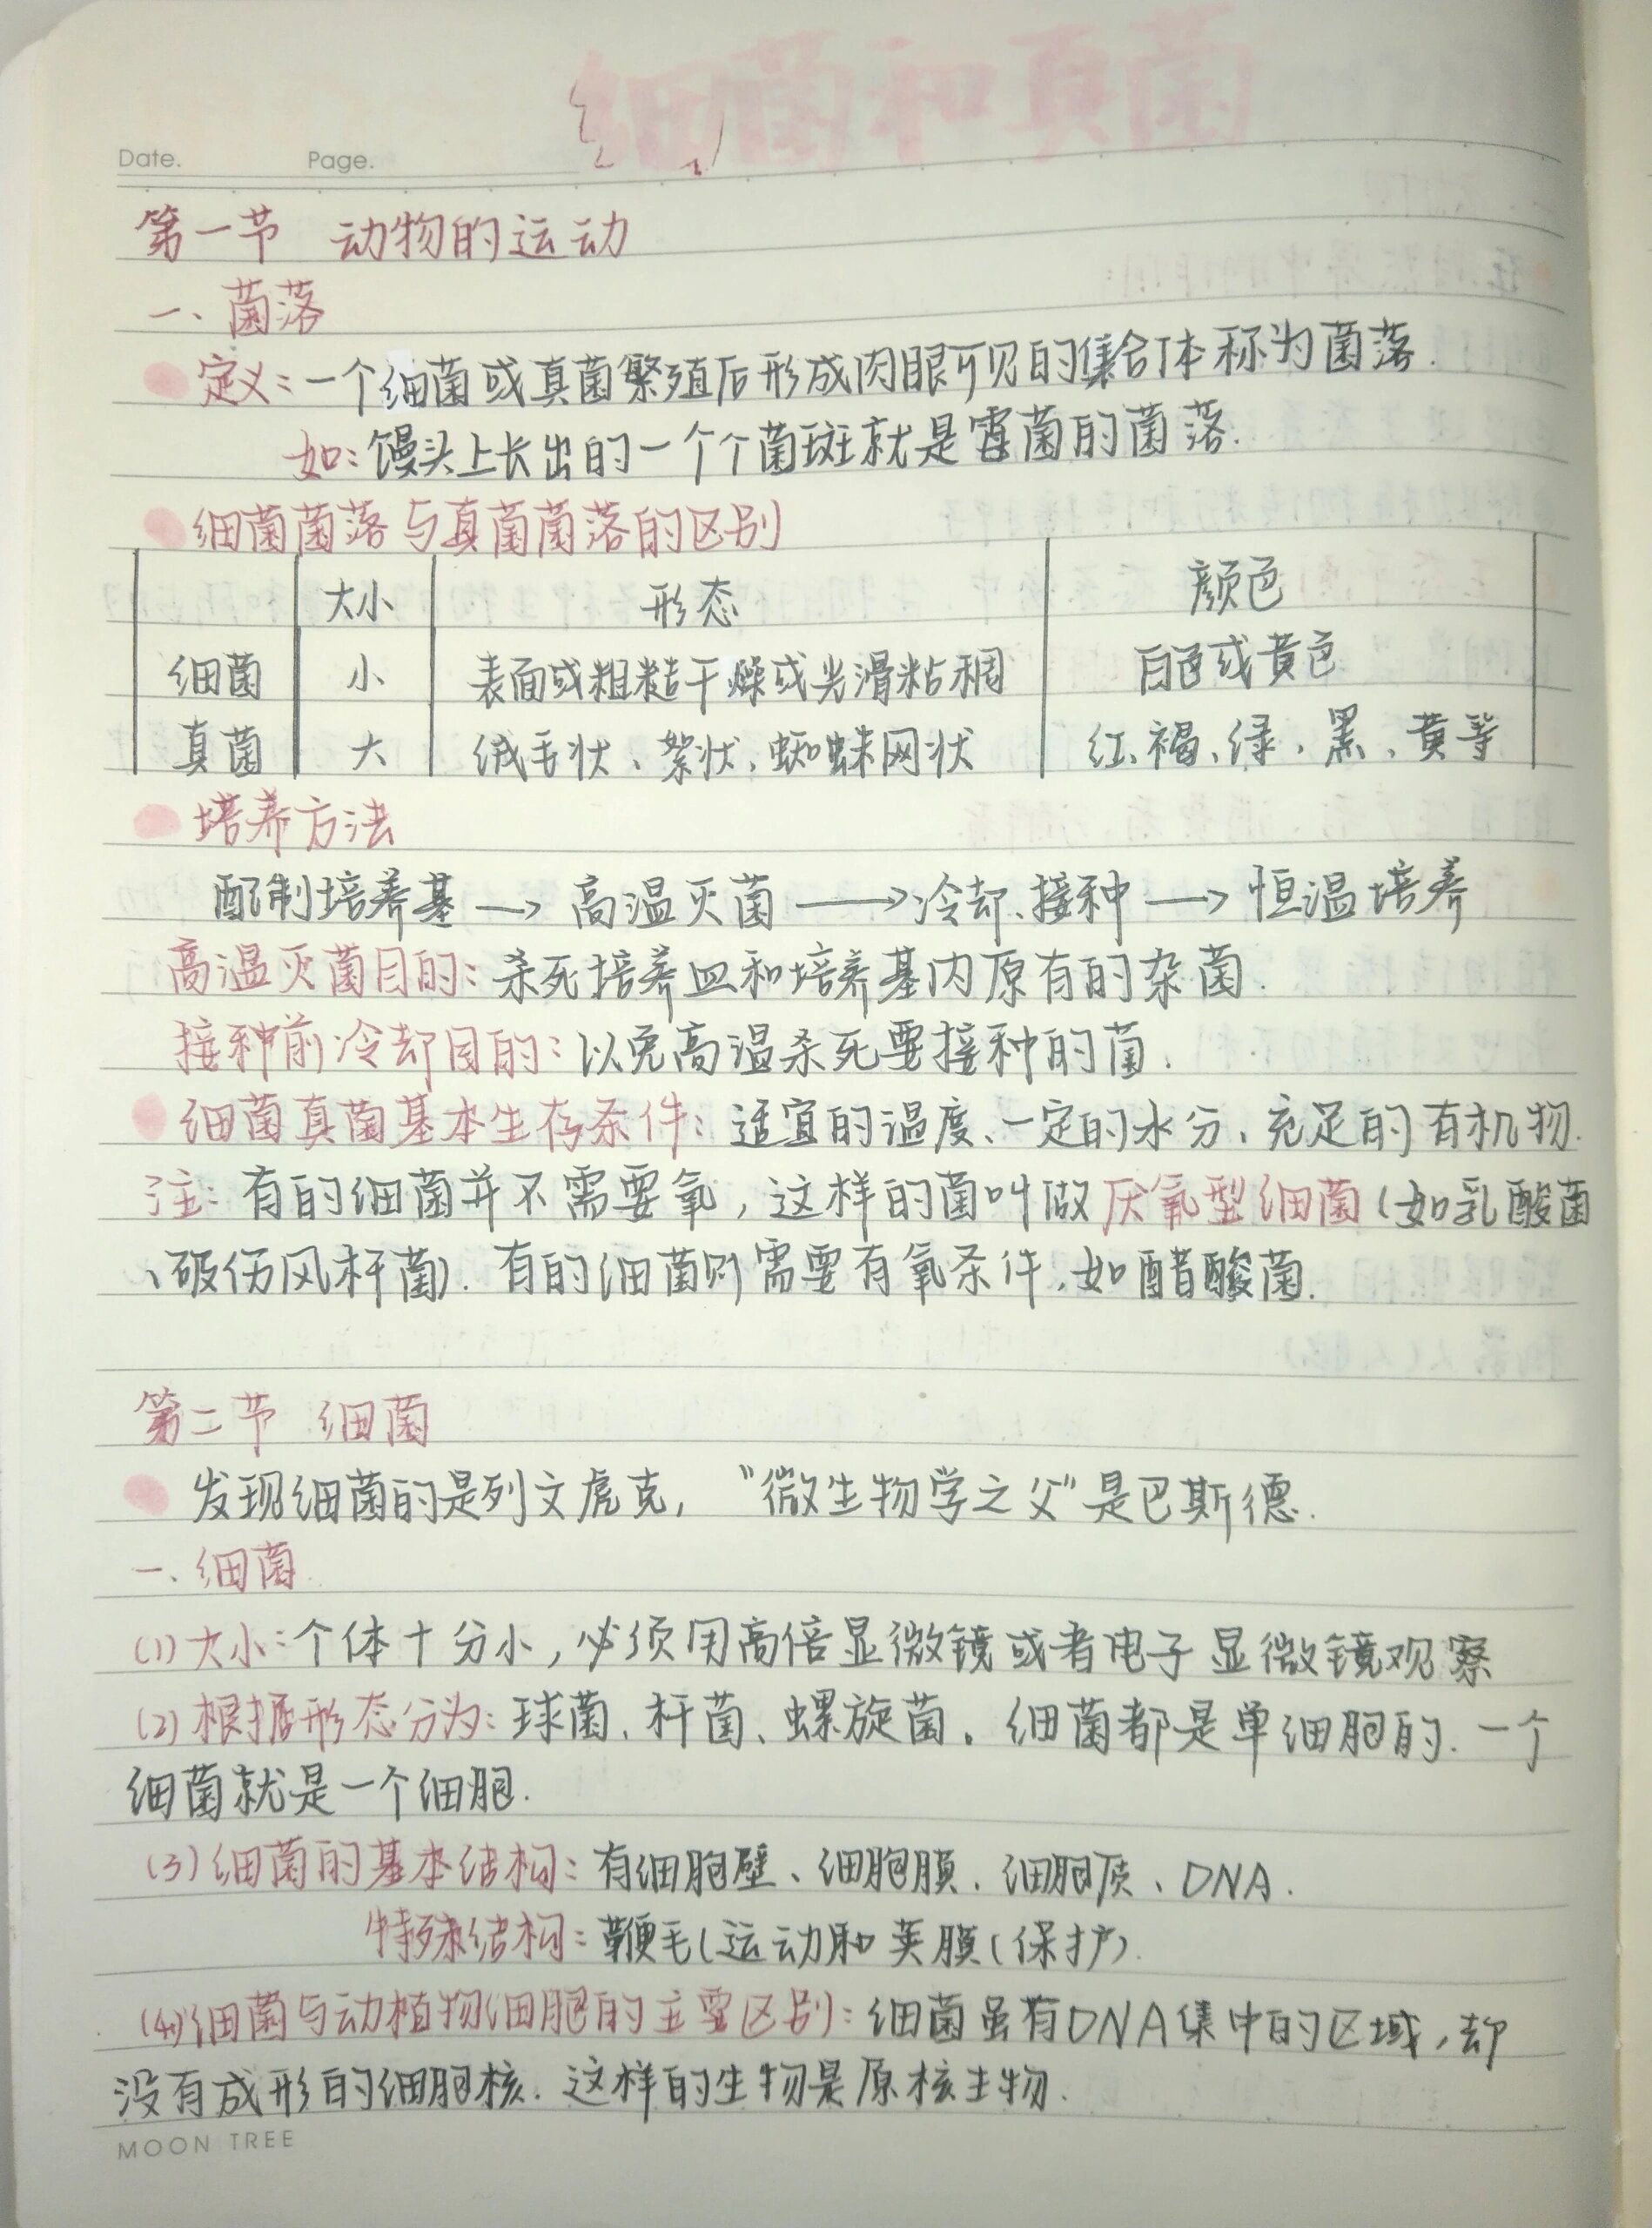 细菌和真菌
Date. Page.
第一节 动物的运动
一、菌落
定义:一个细菌或真菌繁殖后形成肉眼可见的集合体称为菌落.
如:馒头上长出的一个个菌斑就是霉菌的菌落.
细菌菌落与真菌菌落的区别
大小 形态 颜色
细菌 小 表面或粗糙干燥或光滑粘稠 白色或黄色
真菌 大 绒毛状、絮状、蜘蛛网状 红、褐、绿、黑、黄等
培养方法
配制培养基→高温灭菌→冷却、接种→恒温培养
高温灭菌目的:杀死培养皿和培养基内原有的杂菌.
接种前冷却目的:以免高温杀死要接种的菌.
细菌真菌基本生存条件:适宜的温度、一定的水分、充足的有机物.
注:有的细菌并不需要氧,这样的菌叫做厌氧型细菌(如乳酸菌
、破伤风杆菌).有的细菌则需要有氧条件,如醋酸菌.
第二节 细菌
发现细菌的是列文虎克,“微生物学之父”是巴斯德.
一、细菌
(1)大小:个体十分小,必须用高倍显微镜或者电子显微镜观察
(2)根据形态分为:球菌、杆菌、螺旋菌。细菌都是单细胞的.一个
细菌就是一个细胞.
(3)细菌的基本结构:有细胞壁、细胞膜、细胞质、DNA.
特殊结构:鞭毛(运动)和荚膜(保护).
(4)细菌与动植物细胞的主要区别:细菌虽有DNA集中的区域,却
没有成形的细胞核.这样的生物是原核生物.
MOON TREE